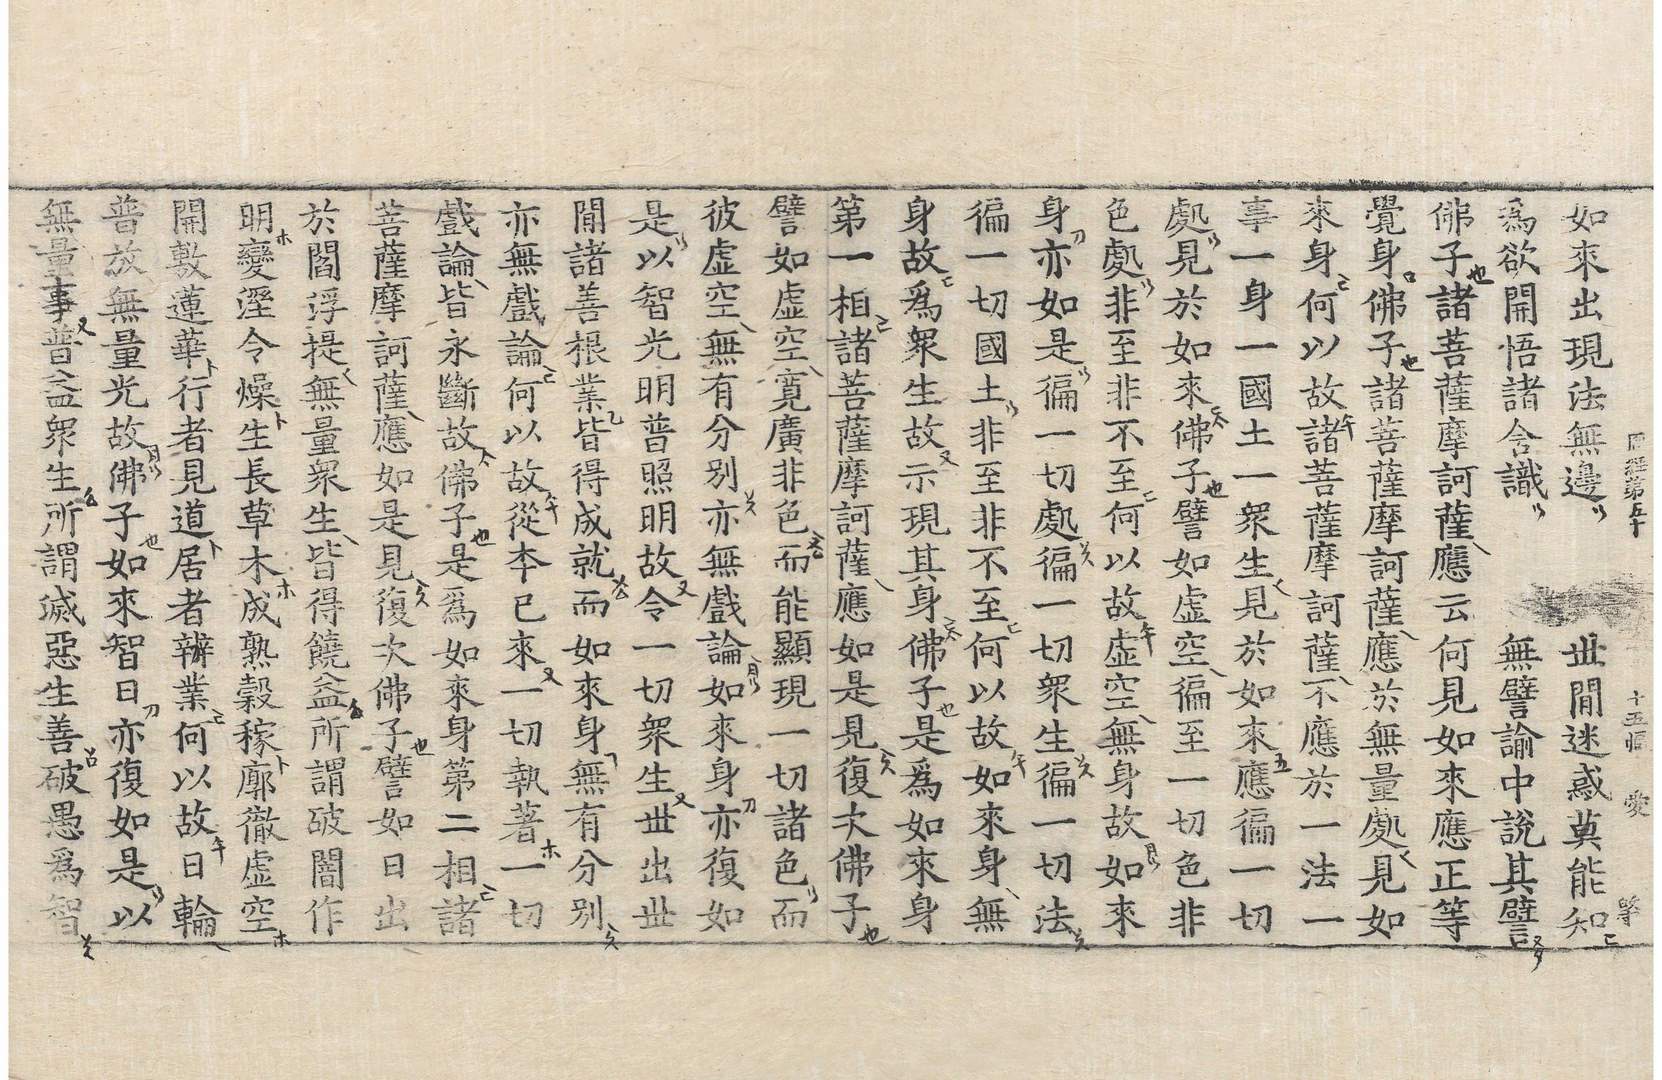 如來出現法無邊　世間迷惑莫能知
爲欲開悟諸含識　無譬諭中說其譬
佛子諸菩薩摩訶薩應云何見如來應正等
覺身佛子諸菩薩摩訶薩應於無量處見如
來身何以故諸菩薩摩訶薩不應於一法一
事一身一國土一衆生見於如來應徧一切
處見於如來佛子譬如虛空徧至一切色非
色處非至非不至何以故虛空無身故如來
身亦如是徧一切處徧一切衆生徧一切法
徧一切國土非至非不至何以故如來身無
身故爲衆生故示現其身佛子是爲如來身
第一相諸菩薩摩訶薩應如是見復次佛子
譬如虛空寬廣非色而能顯現一切諸色而
彼虛空無有分別亦無戲論如來身亦復如
是以智光明普照明故令一切衆生世出世
間諸善根業皆得成就而如來身無有分別
亦無戲論何以故從本已來一切執著一切
戲論皆永斷故佛子是爲如來身第二相諸
菩薩摩訶薩應如是見復次佛子譬如日出
於閻浮提無量衆生皆得饒益所謂破闇作
明變溼令燥生長草木成熟穀稼廓徹虛空
開敷蓮華行者見道居者辦業何以故日輪
普放無量光故佛子如來智日亦復如是以
無量事普益衆生所謂滅惡生善破愚爲智